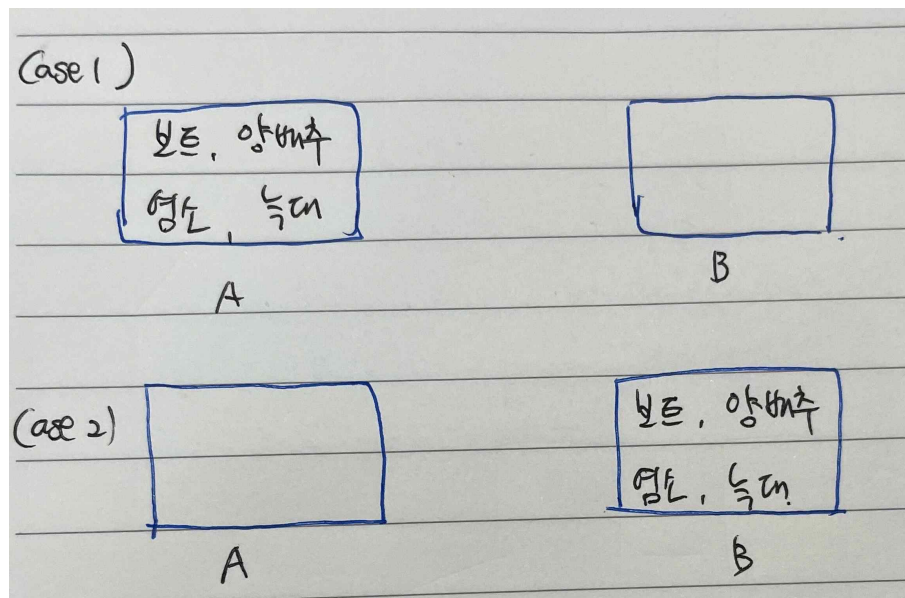 Case 1)
보트, 양배추
염소, 늑대
A B
Case 2)
보트, 양배추
염소, 늑대.
A B